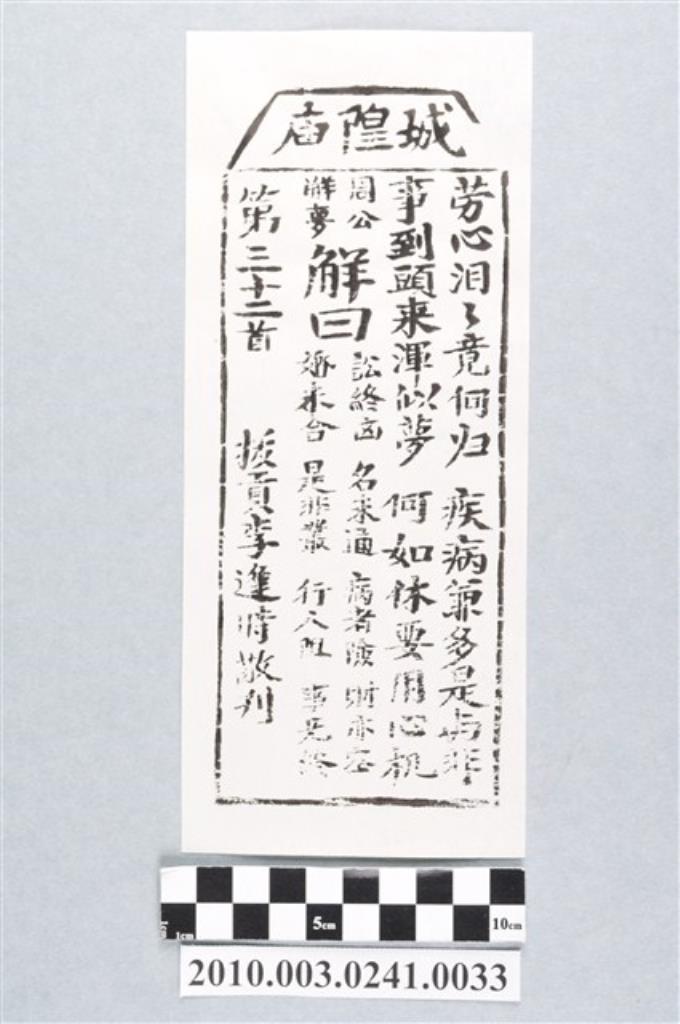 城隍庙
劳心汨々竟何归 疾病兼多是与非
事到頭来渾似夢 何如休要用心机
周公
解夢
解曰
訟終凶 名未通 病者險 財亦空
婚未合 是非叢 行人阻 事无終
第三十二首 拔貢李進時敬刋
1cm 5cm 10cm
2010.003.0241.0033